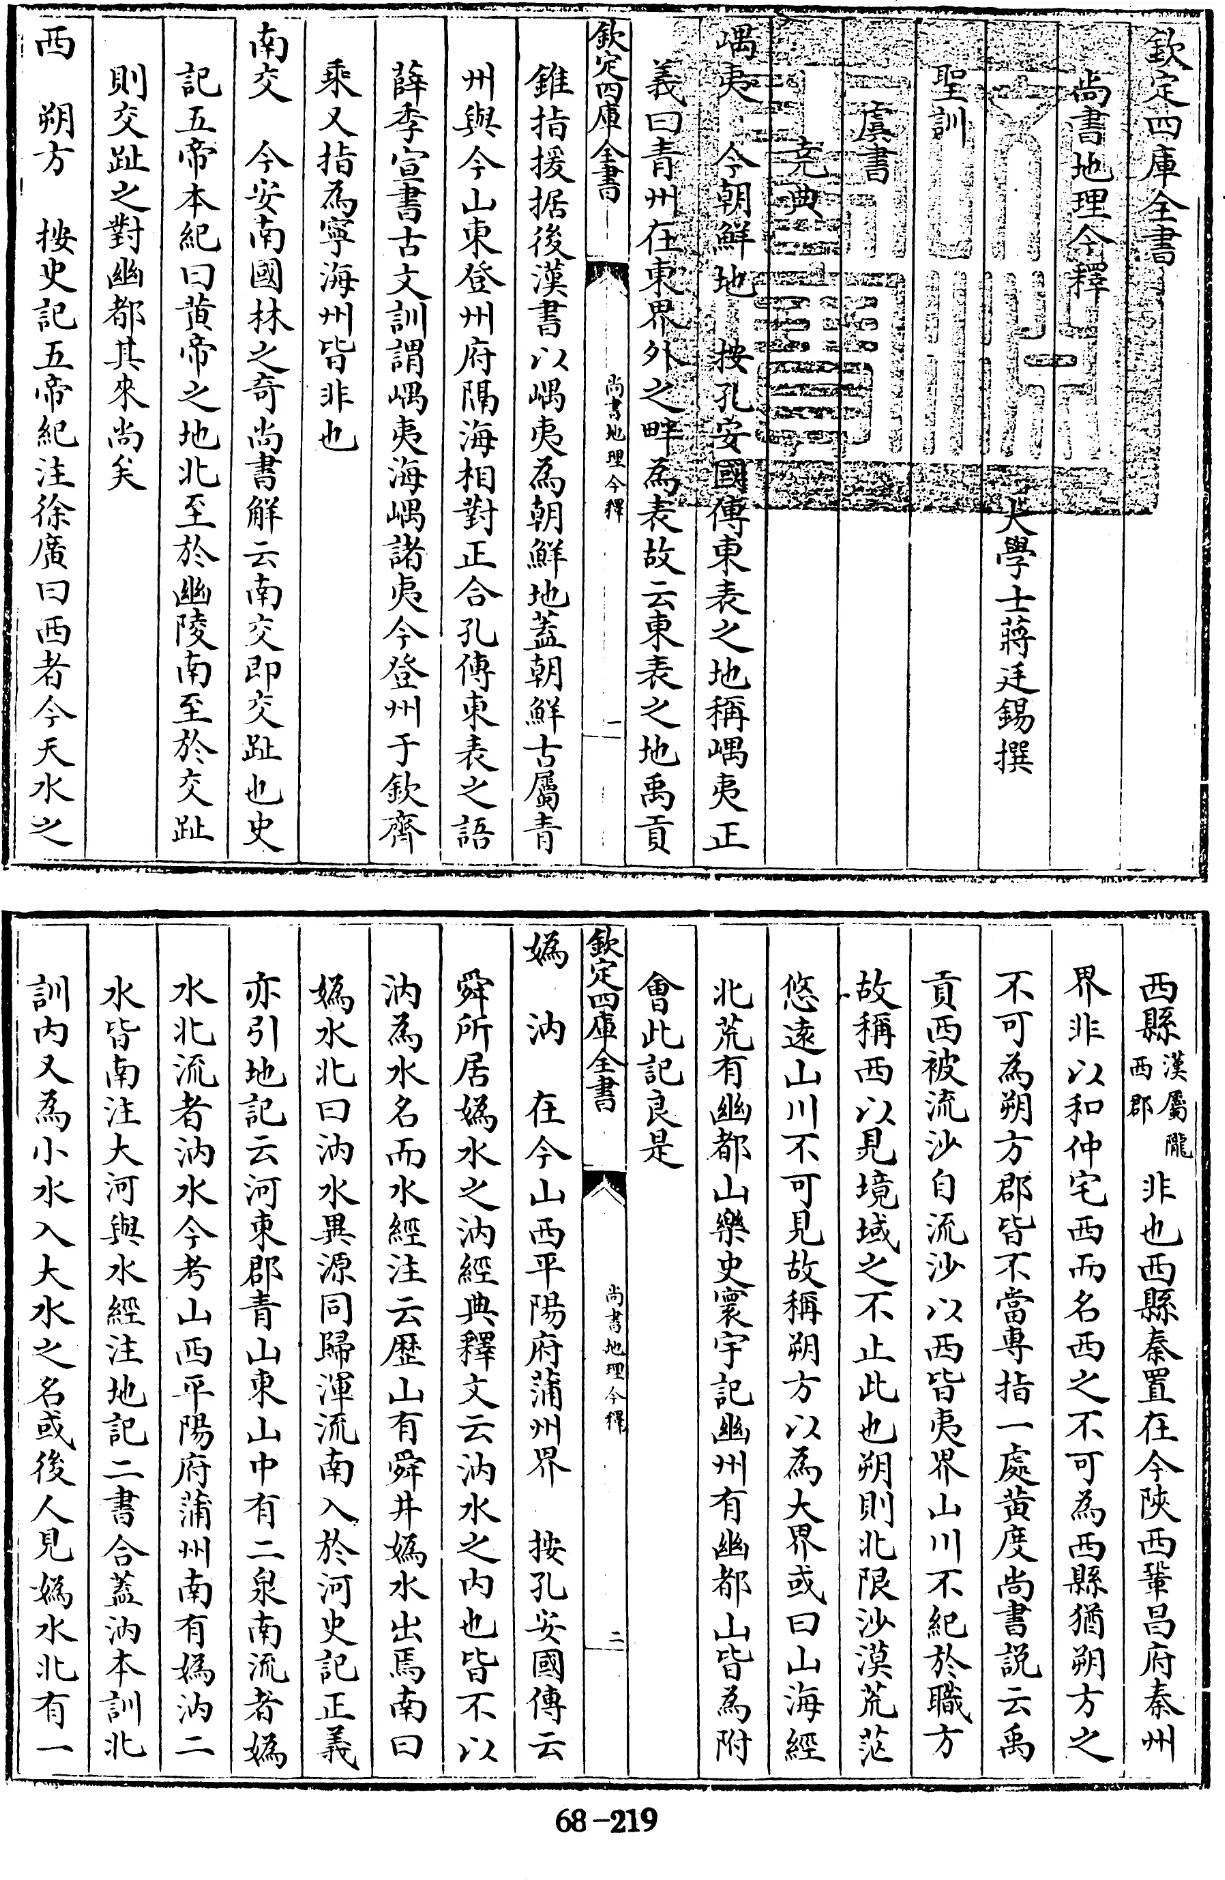 欽定四庫全書
尚書地理今釋
大學士蔣廷錫撰
聖訓
虞書
堯典
嵎夷　今朝鮮地　按孔安國傳東表之地稱嵎夷正
義曰青州在東界外之畔為表故云東表之地禹貢
欽定四庫全書
尚書地理今釋
一
錐指援据後漢書以嵎夷為朝鮮地蓋朝鮮古屬青
州與今山東登州府隔海相對正合孔傳東表之語
薛季宣書古文訓謂嵎夷海嵎諸夷今登州于欽齊
乘又指為寧海州皆非也
南交　今安南國林之奇尚書解云南交即交趾也史
記五帝本紀曰黄帝之地北至於幽陵南至於交趾
則交趾之對幽都其來尚矣
西　朔方　按史記五帝紀注徐廣曰西者今天水之
西縣漢屬隴西郡非也西縣秦置在今陜西鞏昌府秦州
界非以和仲宅西而名西之不可為西縣猶朔方之
不可為朔方郡皆不當專指一處黄度尚書説云禹
貢西被流沙自流沙以西皆夷界山川不紀於職方
故稱西以見境域之不止此也朔則北限沙漠荒茫
悠遠山川不可見故稱朔方以為大界或曰山海經
北荒有幽都山樂史寰宇記幽州有幽都山皆為附
會此記良是
欽定四庫全書
尚書地理今釋
二
媯汭　在今山西平陽府蒲州界　按孔安國傳云
舜所居媯水之汭經典釋文云汭水之内也皆不以
汭為水名而水經注云歴山有舜井媯水出焉南曰
媯水北曰汭水異源同歸渾流南入於河史記正義
亦引地記云河東郡青山東山中有二泉南流者媯
水北流者汭水今考山西平陽府蒲州南有媯汭二
水皆南注大河與水經注地記二書合蓋汭本訓北
訓内又為小水入大水之名或後人見媯水北有一
68-219